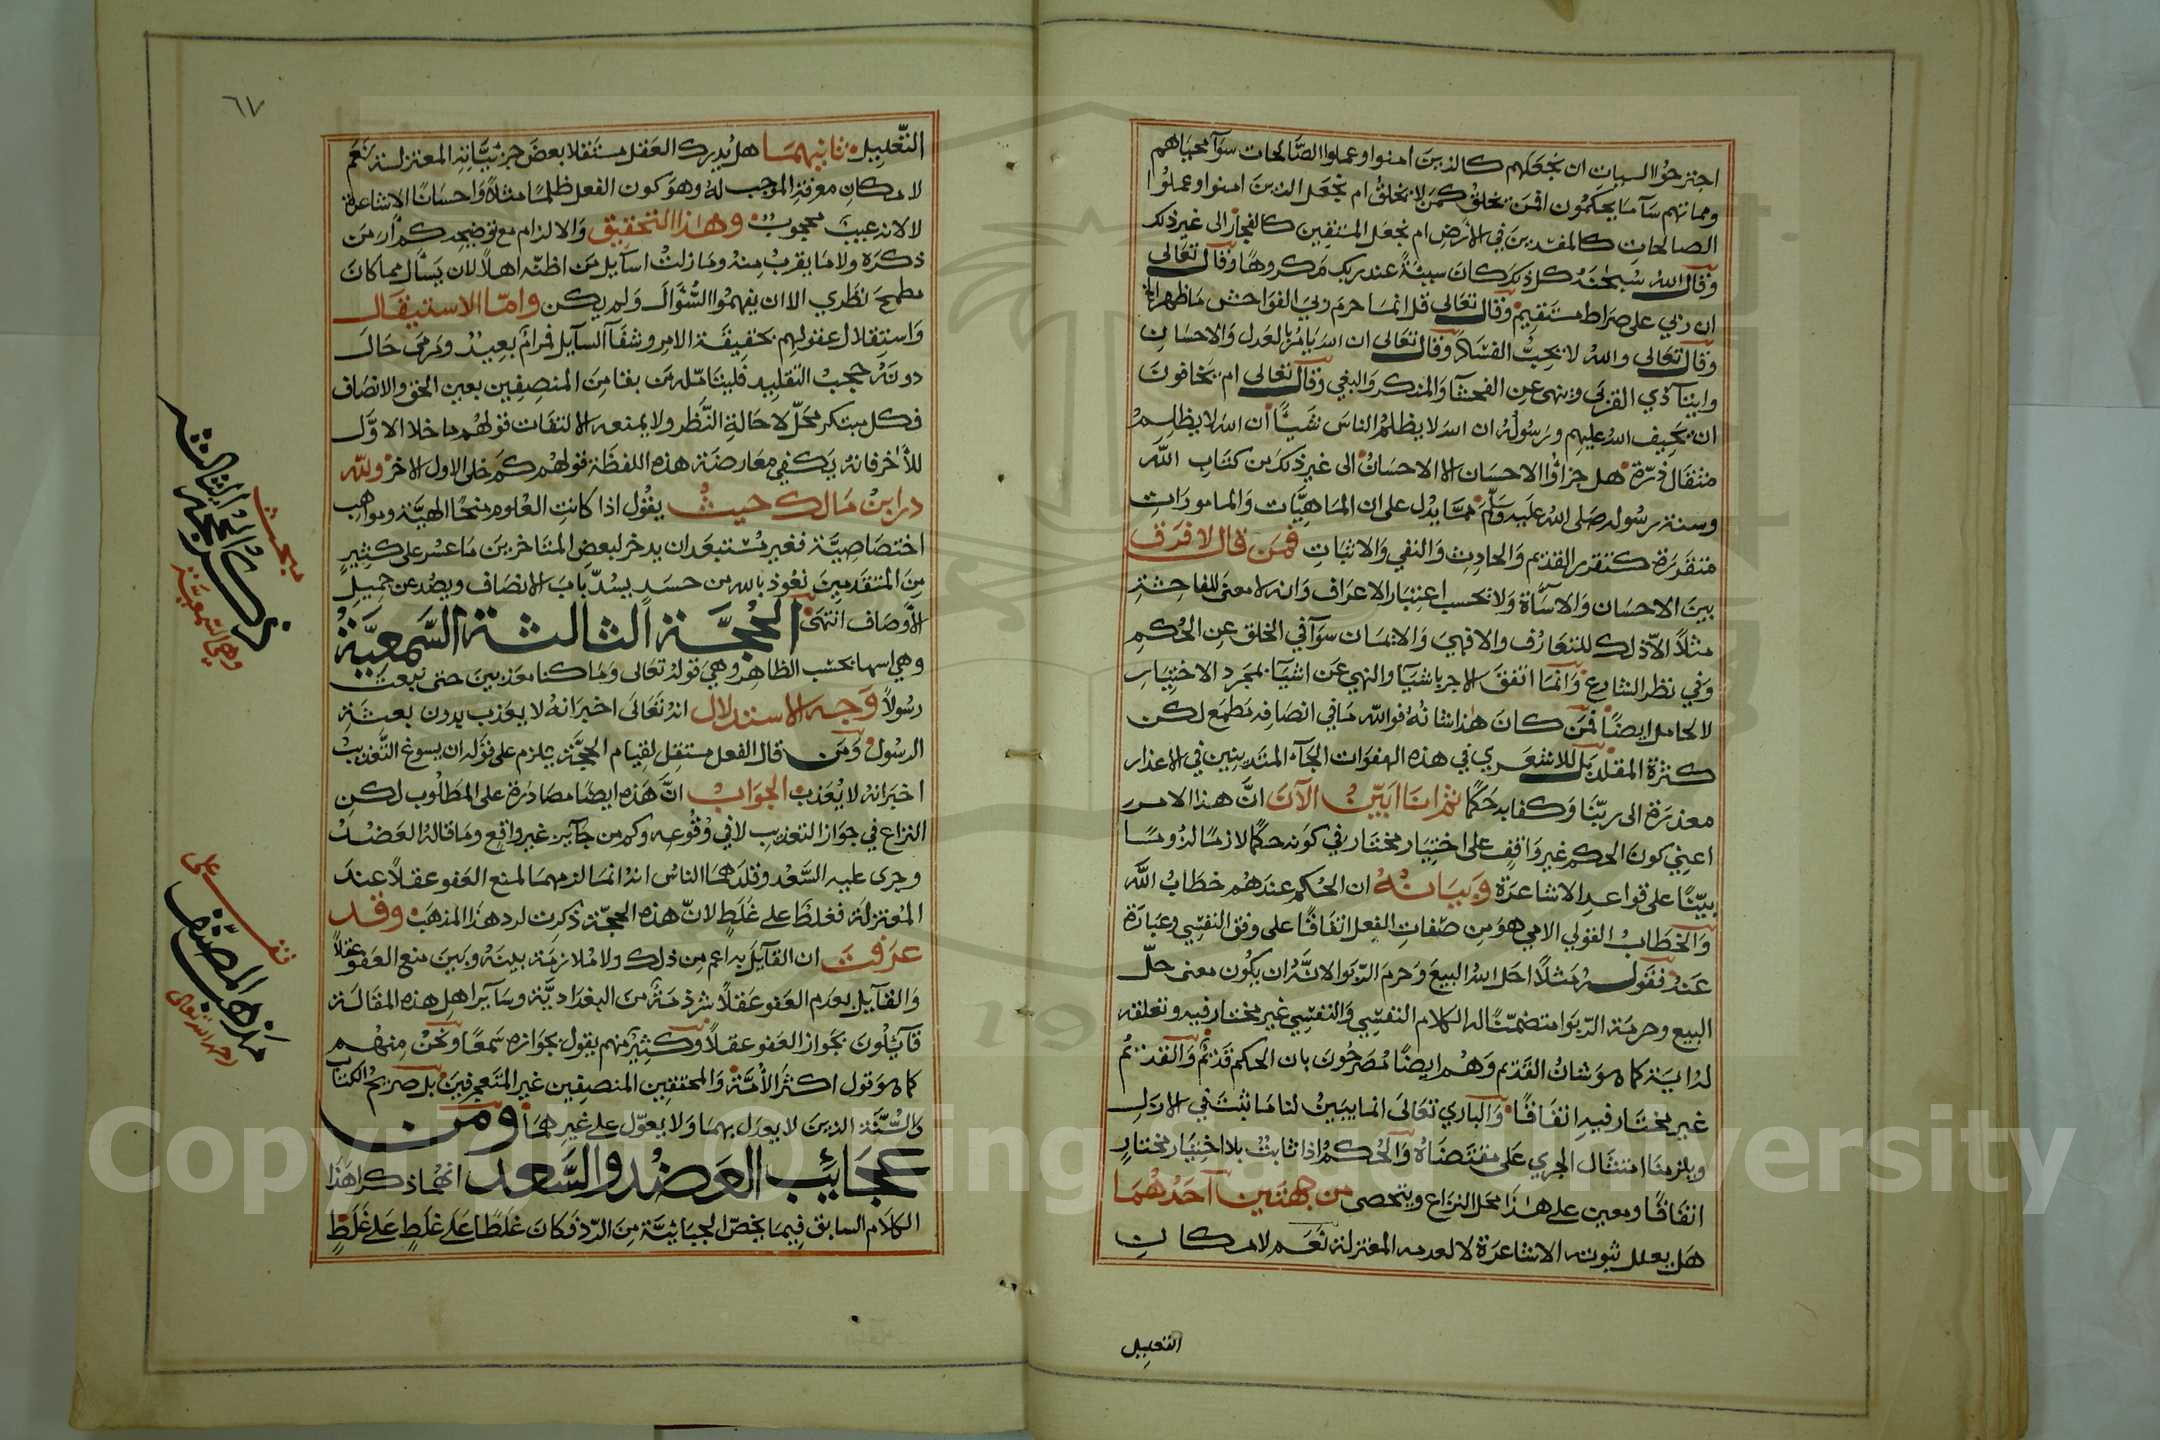 اجترحوا السيات ان نجعلهم كالذين امنوا وعملوا الصالحات سوآ محياهم
ومماتهم سآ ما يحكمون افمن يخلق كمن لا يخلق ام نجعل الذين امنوا وعملوا
الصالحات كالمفسدين في الأرض ام نجعل المتقين كالفجار الى غير ذلك
وقال الله سبحنه كل ذلك كان سيئة عند ربك مكروها وقال تعالى
ان ربي على صراط مستقيم وقال تعالى قل انما حرم ربي الفواحش ما ظهر الخ
وقال تعالى والله لا يحب الفساد وقال تعالى ان الله يامر بالعدل والاحسان
وايتآ ذي القربى وينهى عن الفحشآ والمنكر والبغي وقال تعالى ام يخافون
ان يحيف الله عليهم ورسوله ان الله لا يظلم الناس شيا ان الله لا يظلم
مثقال ذرة هل جزاؤا الاحسان الا الاحسان الى غير ذلك من كتاب الله
وسنة رسوله صلى الله عليه وسلم مما يدل على ان المناهيات والمامورات
متقدرة كتقرر القديم والحادث والنفي والاثبات فمن قال لا فرق
بين الاحسان والاسآة ولا بحسب اعتبار الاعراف وانه لا معنى للفاحشة
مثلا الا ذلك للتعارف والا فهي والايمان سوآ في الخلق عن الحكم
وفي نظر الشارع وانما اتفق الامر باشيآ والنهي عن اشيآ بمجرد الاختيار
لا لحامل ايضا فمن كان هذا شانه فوالله ما في انصافه مطمع لكن
كثرة المقلد بل للاشعري في هذه الهفوات الجآء المتدينين في الاعذار
معذرة الى ربنا وكفا به حكما ثم انا ابين الآن ان هذا الامر
اعني كون الحكم غير واقف على اختيار مختار في كونه حكما لازما لزوما
بينا على قواعد الاشاعرة وبيانه ان الحكم عندهم خطاب الله
والخطاب القولي الامي هو من صفات الفعل اتفاقا على وفق النفسي وعبارة
عنه فقوله مثلا احل الله البيع وحرم الربوا لا بد ان يكون معنى حل
البيع وحرمة الربوا متضمنا له الكلام النفسي والنفسي غير مختار فيه وتعلقه
لذاتية كما هو شان القديم وهم ايضا مصرحون بان الحكم قديم والقديم
غير مختار فيه اتفاقا والباري تعالى انما يبين لنا ما ثبت في الازل
ويلزمنا امتثال الجري على مقتضاه والحكم اذا ثابت بلا اختيار مختار
اتفاقا ومعين على هذا محل النزاع ويتحصى من جهتين آحديهما
هل يعلل ثبوته الاشاعرة لا لعدمه المعتزلة نعم لامكان
التعليل
٦٧
التعليل ثانيهما هل يدرك العقل مستقلا بعض جزئياته المعتزلة نعم
لامكان معرفة الموجب له وهو كون الفعل ظلما مثلا واحسانا الاشاعرة
لا لانه عيب محجوب وهذا التحقيق والالزام مع توضيحه كم أر من
ذكره ولا ما يقرب منه وما زلت اسآيل من اظنه اهلا لان يسأل مما كان
مطمح نظري الا ان يفهموا السؤال ولم يكن واما الاستيقال
واستقلال عقولهم بحقيقة الامر وشفآ السآيل فرام بعيد ومرمى حال
دونه حجب التقليد فليتامله من بقا من المنصفين بعين الحق والانصاف
فكل مبتكر محل لا حالة النظر ولا يمنعه الالتفات قولهم ما خلا الاول
للأخر فانه يكفي معارضة هذه اللفظة قولهم كم خلى الاول للاخر ولله
در ابن مالك حيث يقول اذا كانت العلوم منحا الهية ومواهب
اختصاصية فغير مستبعد ان يدخر لبعض المتاخرين ما عسر على كثير
من المتقدمين نعوذ بالله من حسد يسد باب الانصاف ويصد عن جميل
الأوصاف انتهى الحجة الثالثة السمعية
وهي اسها بحسب الظاهر وهي قوله تعالى وما كنا معذبين حتى نبعث
رسولا وجه الاستدلال انه تعالى اخبر انه لا يعذب بدون بعثة
الرسول ومن قال الفعل مستقل لقيام الحجة يلزم على قوله ان يسوغ التعذيب
اخبر انه لا يعذب الجواب ان هذه ايضا مصادرة على المطلوب لكن
النزاع في جواز التعذيب لا في وقوعه وكم من جآيز غير واقع وما قاله العضد
وجرى عليه السعد وقلدهما الناس انه انما لازمهما لمنع العفو عقلا عند
المعتزلة فغلط على غلط لان هذه الحجة ذكرت لرد هذا المذهب وقد
عرفت ان القآيل به اعم من ذلك ولا ملازمة بينه وبين منع العفو عقلا
والقآيل بعدم العفو عقلا شرذمة من البغدادية وسآير اهل هذه المقالة
قآئلون بجواز العفو عقلا وكثير منهم يقول بجوازه سمعا ونحن منهم
كما هو قول اكثر الأمة والمحققين المنصفين غير المتعجرفين بل صريح الكتاب
والسنة الذين لا يعدل بهما ولا يعول على غيرهما ومن
عجائب العضد والسعد انهما ذكرا هذا
الكلام السابق فيما يخص الجبائية من الرد فكان غلطا على غلط على غلط
مبحث
ذكر الحجة الثالثة
وهي السمعية
نقس على
مذهب المصنف
رحمه الله تعالى
Copyright © King Saud University